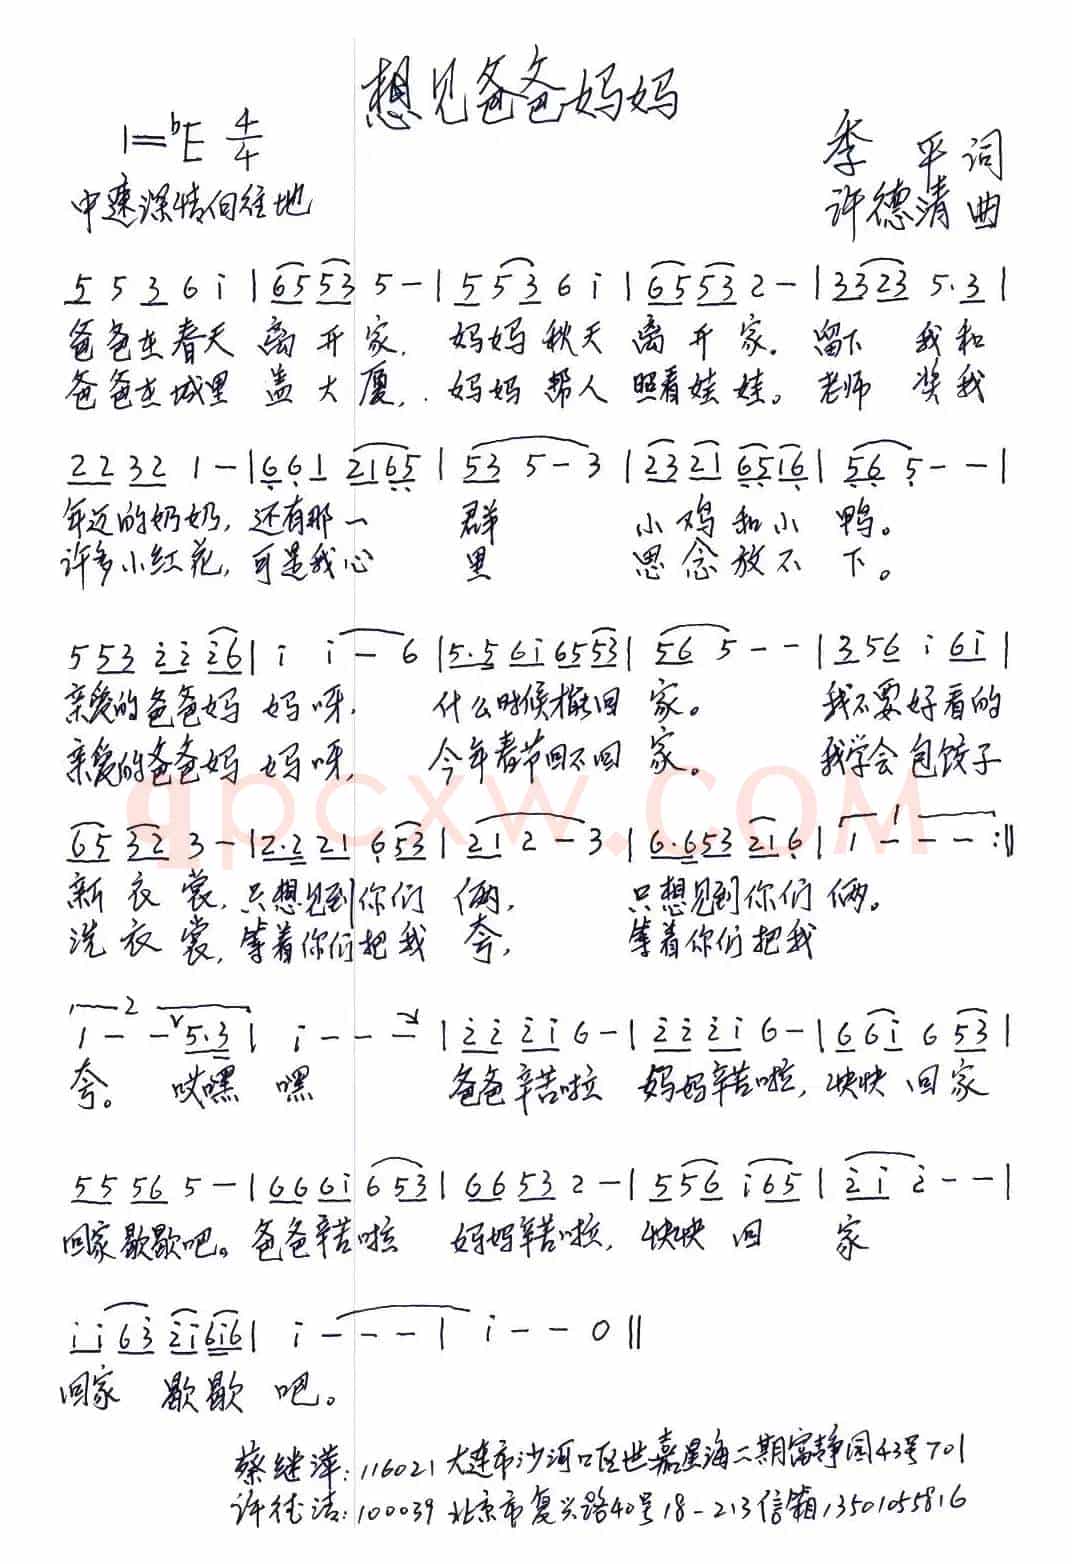 想见爸爸妈妈
1=♭E 4/4
季 平 词
中速深情向往地
许德清 曲
5 5 3 6 i | 6553 5 - | 5 53 6 i | 6553 2 - | 3323 5·3 |
爸爸在春天 离开家. 妈妈秋天 离开家。留下 我和
爸爸在城里 盖大厦, 妈妈帮人 照看娃娃。老师 奖我
22 32 1 - | 661 2165 | 53 5 - 3 | 2321 6516 | 56 5 - - |
年迈的奶奶, 还有那一 群 小鸡和小 鸭。
许多小红花, 可是我心 里 思念放不 下。
553 ii i6 | i i - 6 | 5·5 6i 6553 | 56 5 - - | 356 i 6i |
亲爱的爸爸妈 妈呀, 什么时候才能回 家。 我不要好看的
亲爱的爸爸妈 妈呀, 今年春节回不回 家。 我学会包饺子
65 32 3 - | 2·2 21 653 | 21 2 - 3 | 6·653 216 | 1 - - - :||
新衣裳, 只想见到你们 俩, 只想见到你们 俩。
洗衣裳, 等着你们把我 夸, 等着你们把我
1 - - 5·3 | i - - - | 2 2 2 i 6 - | 2 2 2 i 6 - | 6 6i 6 53 |
夸。 哎嘿 嘿 爸爸辛苦啦 妈妈辛苦啦, 快快 回家
55 56 5 - | 66 6i 653 | 66 53 2 - | 556 i65 | 2i 2 - - |
回家歇歇吧。爸爸辛苦啦 妈妈辛苦啦, 快快 回 家
i i 63 2i6i6 | i - - - | i - - 0 ||
回家 歇歇 吧。
蔡继萍: 116021 大连市沙河口区世嘉星海二期富静园43号701
许德清: 100039 北京市复兴路40号18-213信箱13501055816
qpcxw.COM